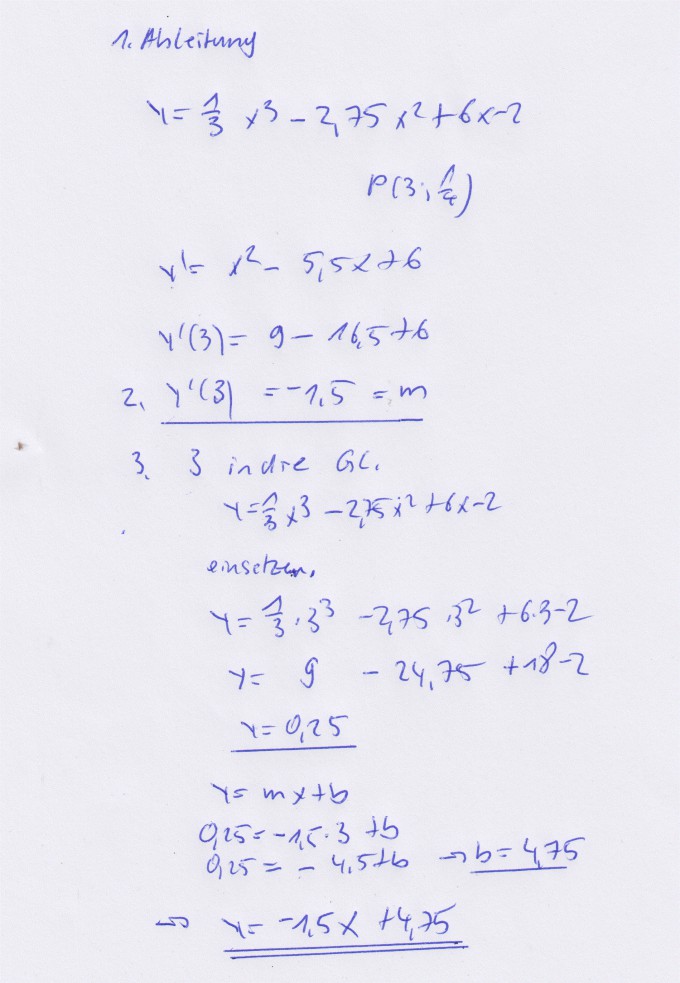 1. Ableitung
y = 1/3 x³ - 2,75 x² + 6x - 2
P(3; 1/4)
y' = x² - 5,5x + 6
y'(3) = 9 - 16,5 + 6
2. y'(3) = -1,5 = m
3. 3 in die Gl.
y = 1/3 x³ - 2,75 x² + 6x - 2
einsetzen.
y = 1/3 · 3³ - 2,75 · 3² + 6·3 - 2
y = 9 - 24,75 + 18 - 2
y = 0,25
y = mx + b
0,25 = -1,5 · 3 + b
0,25 = - 4,5 + b → b = 4,75
⇒ y = -1,5x + 4,75